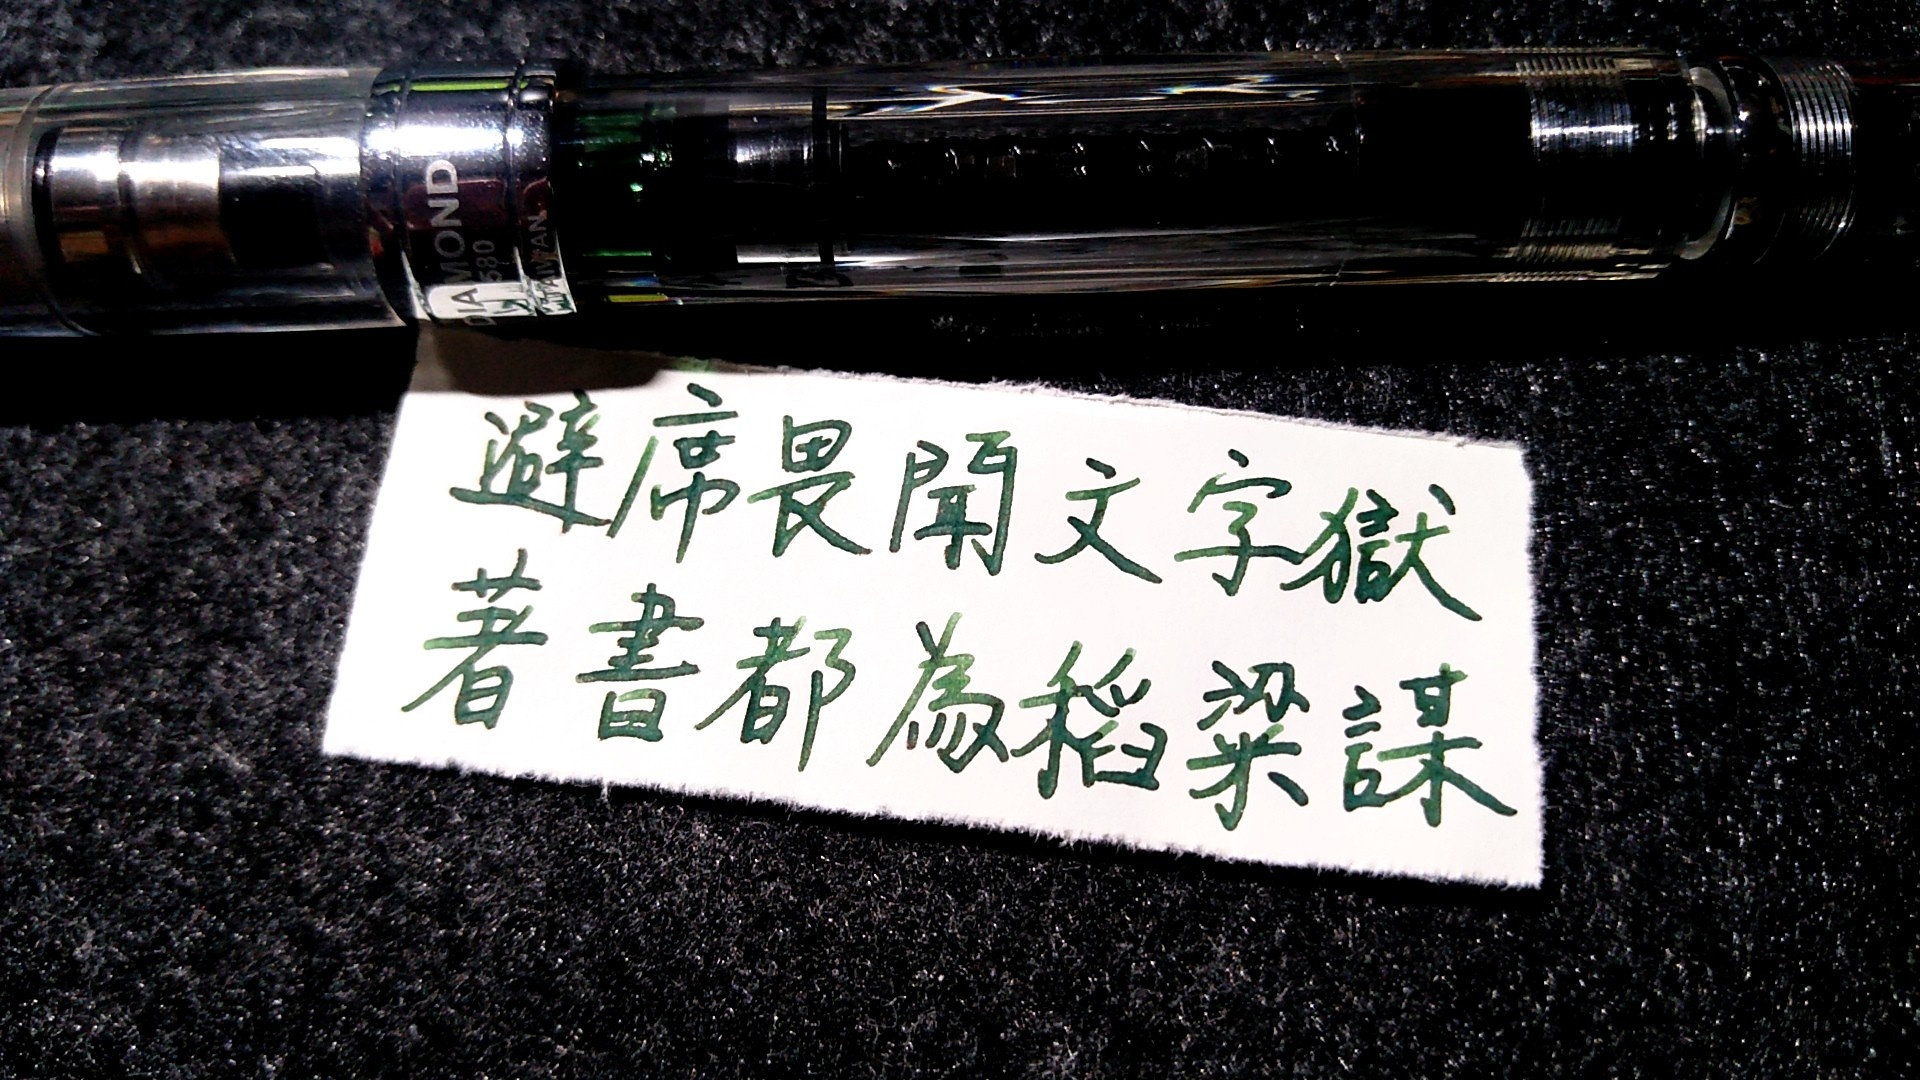 DIAMOND
580
TAIWAN
避席畏聞文字獄
著書都為稻粱謀